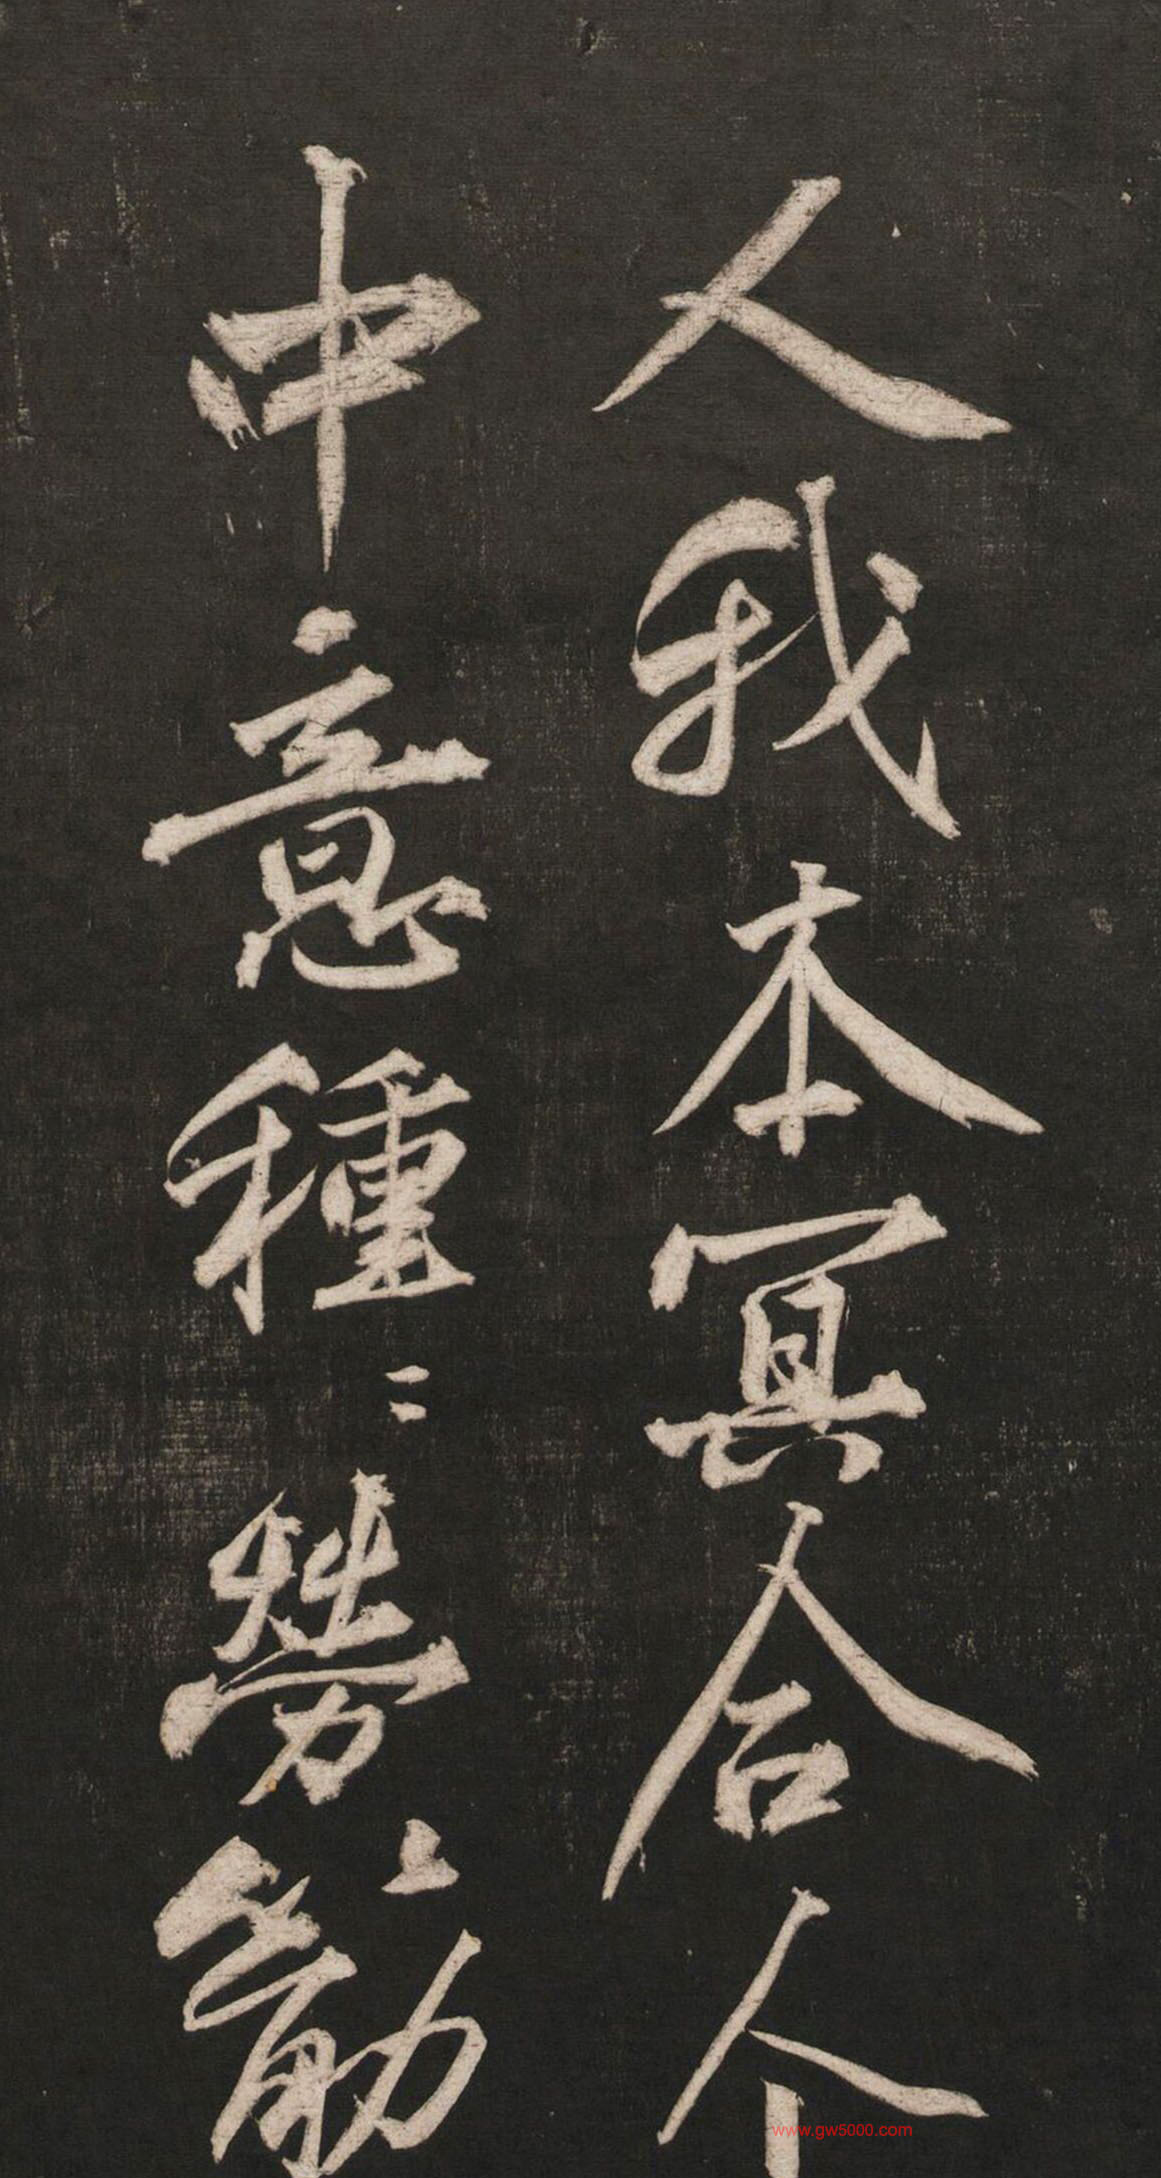 人我本冥合个
中意種〻勞〻筋
www.gw5000.com